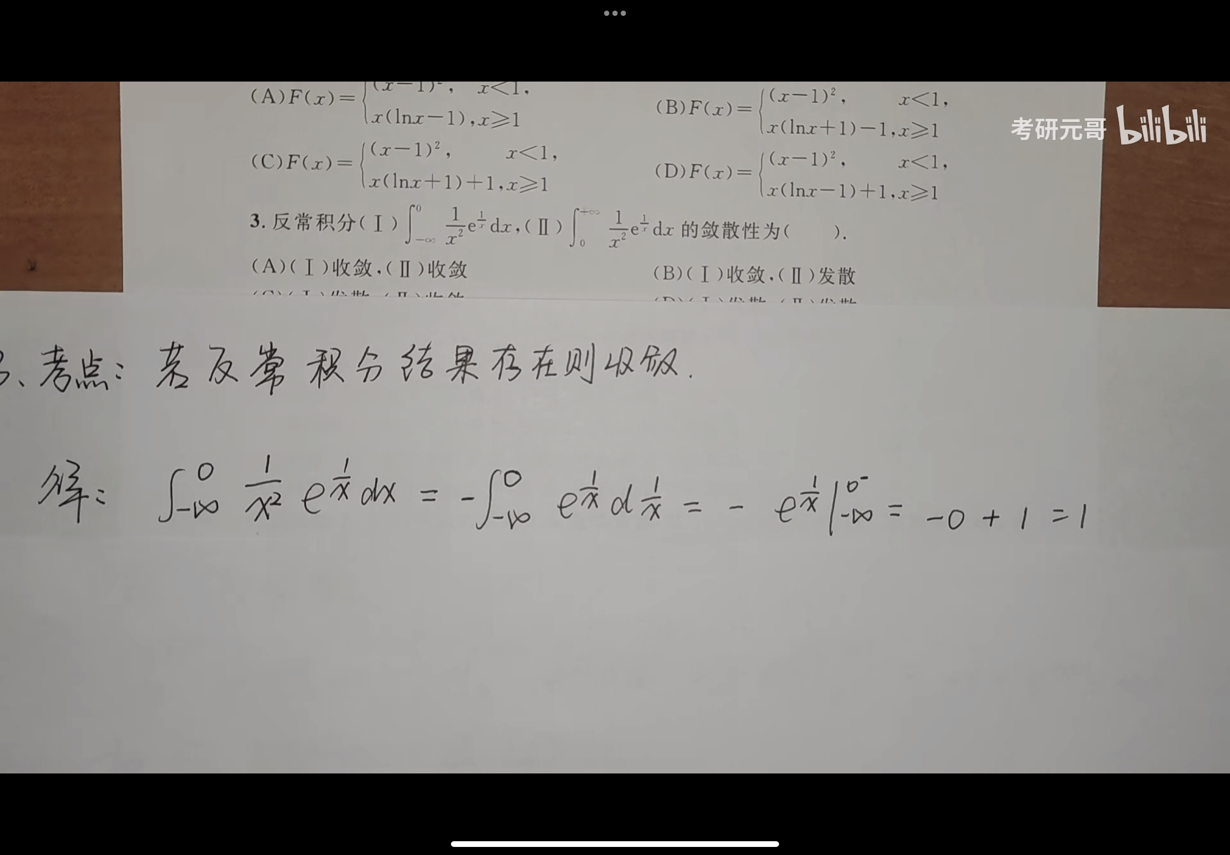 •••
(A)F(x)={(x-1)², x<1, x(lnx-1),x≥1
(B)F(x)={(x-1)², x<1, x(lnx+1)-1,x≥1
考研元哥 bilibili
(C)F(x)={(x-1)², x<1, x(lnx+1)+1,x≥1
(D)F(x)={(x-1)², x<1, x(lnx-1)+1,x≥1
3.反常积分(Ⅰ)∫_{-∞}^{0} 1/x² e^{1/x}dx,(Ⅱ)∫_{0}^{+∞} 1/x² e^{1/x}dx 的敛散性为( ).
(A)(Ⅰ)收敛,(Ⅱ)收敛
(B)(Ⅰ)收敛,(Ⅱ)发散
3、考点：若反常积分结果存在则收敛.
解：∫_{-∞}^{0} 1/x² e^{1/x} dx = -∫_{-∞}^{0} e^{1/x} d 1/x = - e^{1/x} |_{-∞}^{0⁻} = -0 + 1 = 1